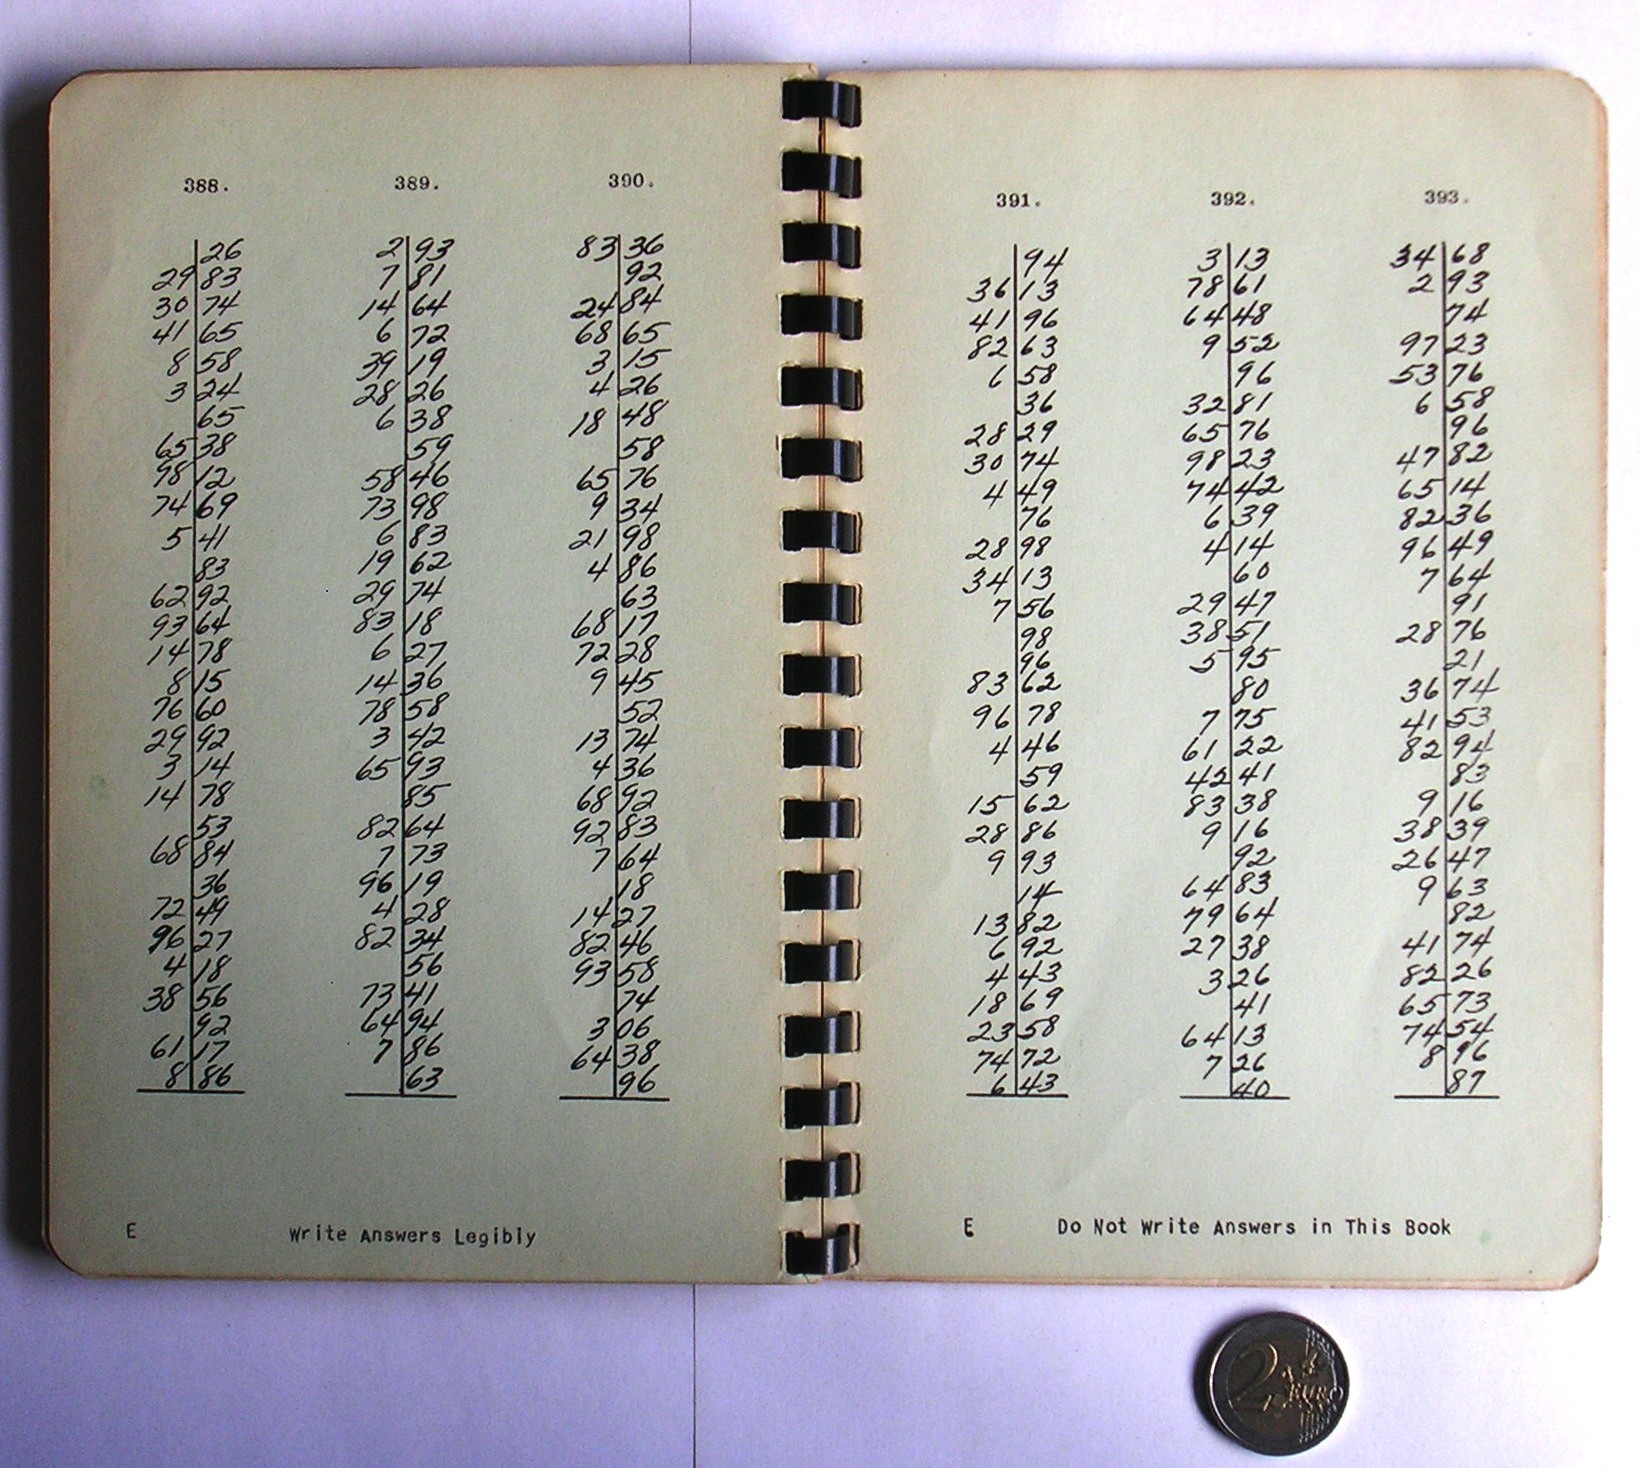 388.
26
29 83
30 74
41 65
8 58
3 24
65
65 38
98 12
74 69
5 41
83
62 92
93 64
14 78
8 15
76 60
29 92
3 14
14 78
53
68 84
36
72 49
96 27
4 18
38 56
92
61 17
8 86
389.
2 93
7 81
14 64
6 72
39 19
28 26
6 38
59
58 46
73 98
6 83
19 62
29 74
83 18
6 27
14 36
78 58
3 42
65 93
85
82 64
7 73
96 19
4 28
82 34
56
73 41
64 94
7 86
63
390.
83 36
92
24 84
68 65
3 15
4 26
18 48
58
65 76
9 34
21 98
4 86
63
68 17
72 28
9 45
52
13 74
4 36
68 92
92 83
7 64
18
14 27
82 46
93 58
74
3 06
64 38
96
E Write Answers Legibly
391.
94
36 13
41 96
82 63
6 58
36
28 29
30 74
4 49
76
28 98
34 13
7 56
98
96
83 62
96 78
4 46
59
15 62
28 86
9 93
14
13 82
6 92
4 43
18 69
23 58
74 72
6 43
392.
3 13
78 61
64 48
9 52
96
32 81
65 76
98 23
74 42
6 39
4 14
60
29 47
38 51
5 95
80
7 75
61 22
42 41
83 38
9 16
92
64 83
79 64
27 38
3 26
41
64 13
7 26
40
393.
34 68
2 93
74
97 23
53 76
6 58
96
47 82
65 14
82 36
96 49
7 64
91
28 76
21
36 74
41 53
82 94
83
9 16
38 39
26 47
9 63
82
41 74
82 26
65 73
74 54
8 96
87
E Do Not Write Answers in This Book
2 EURO